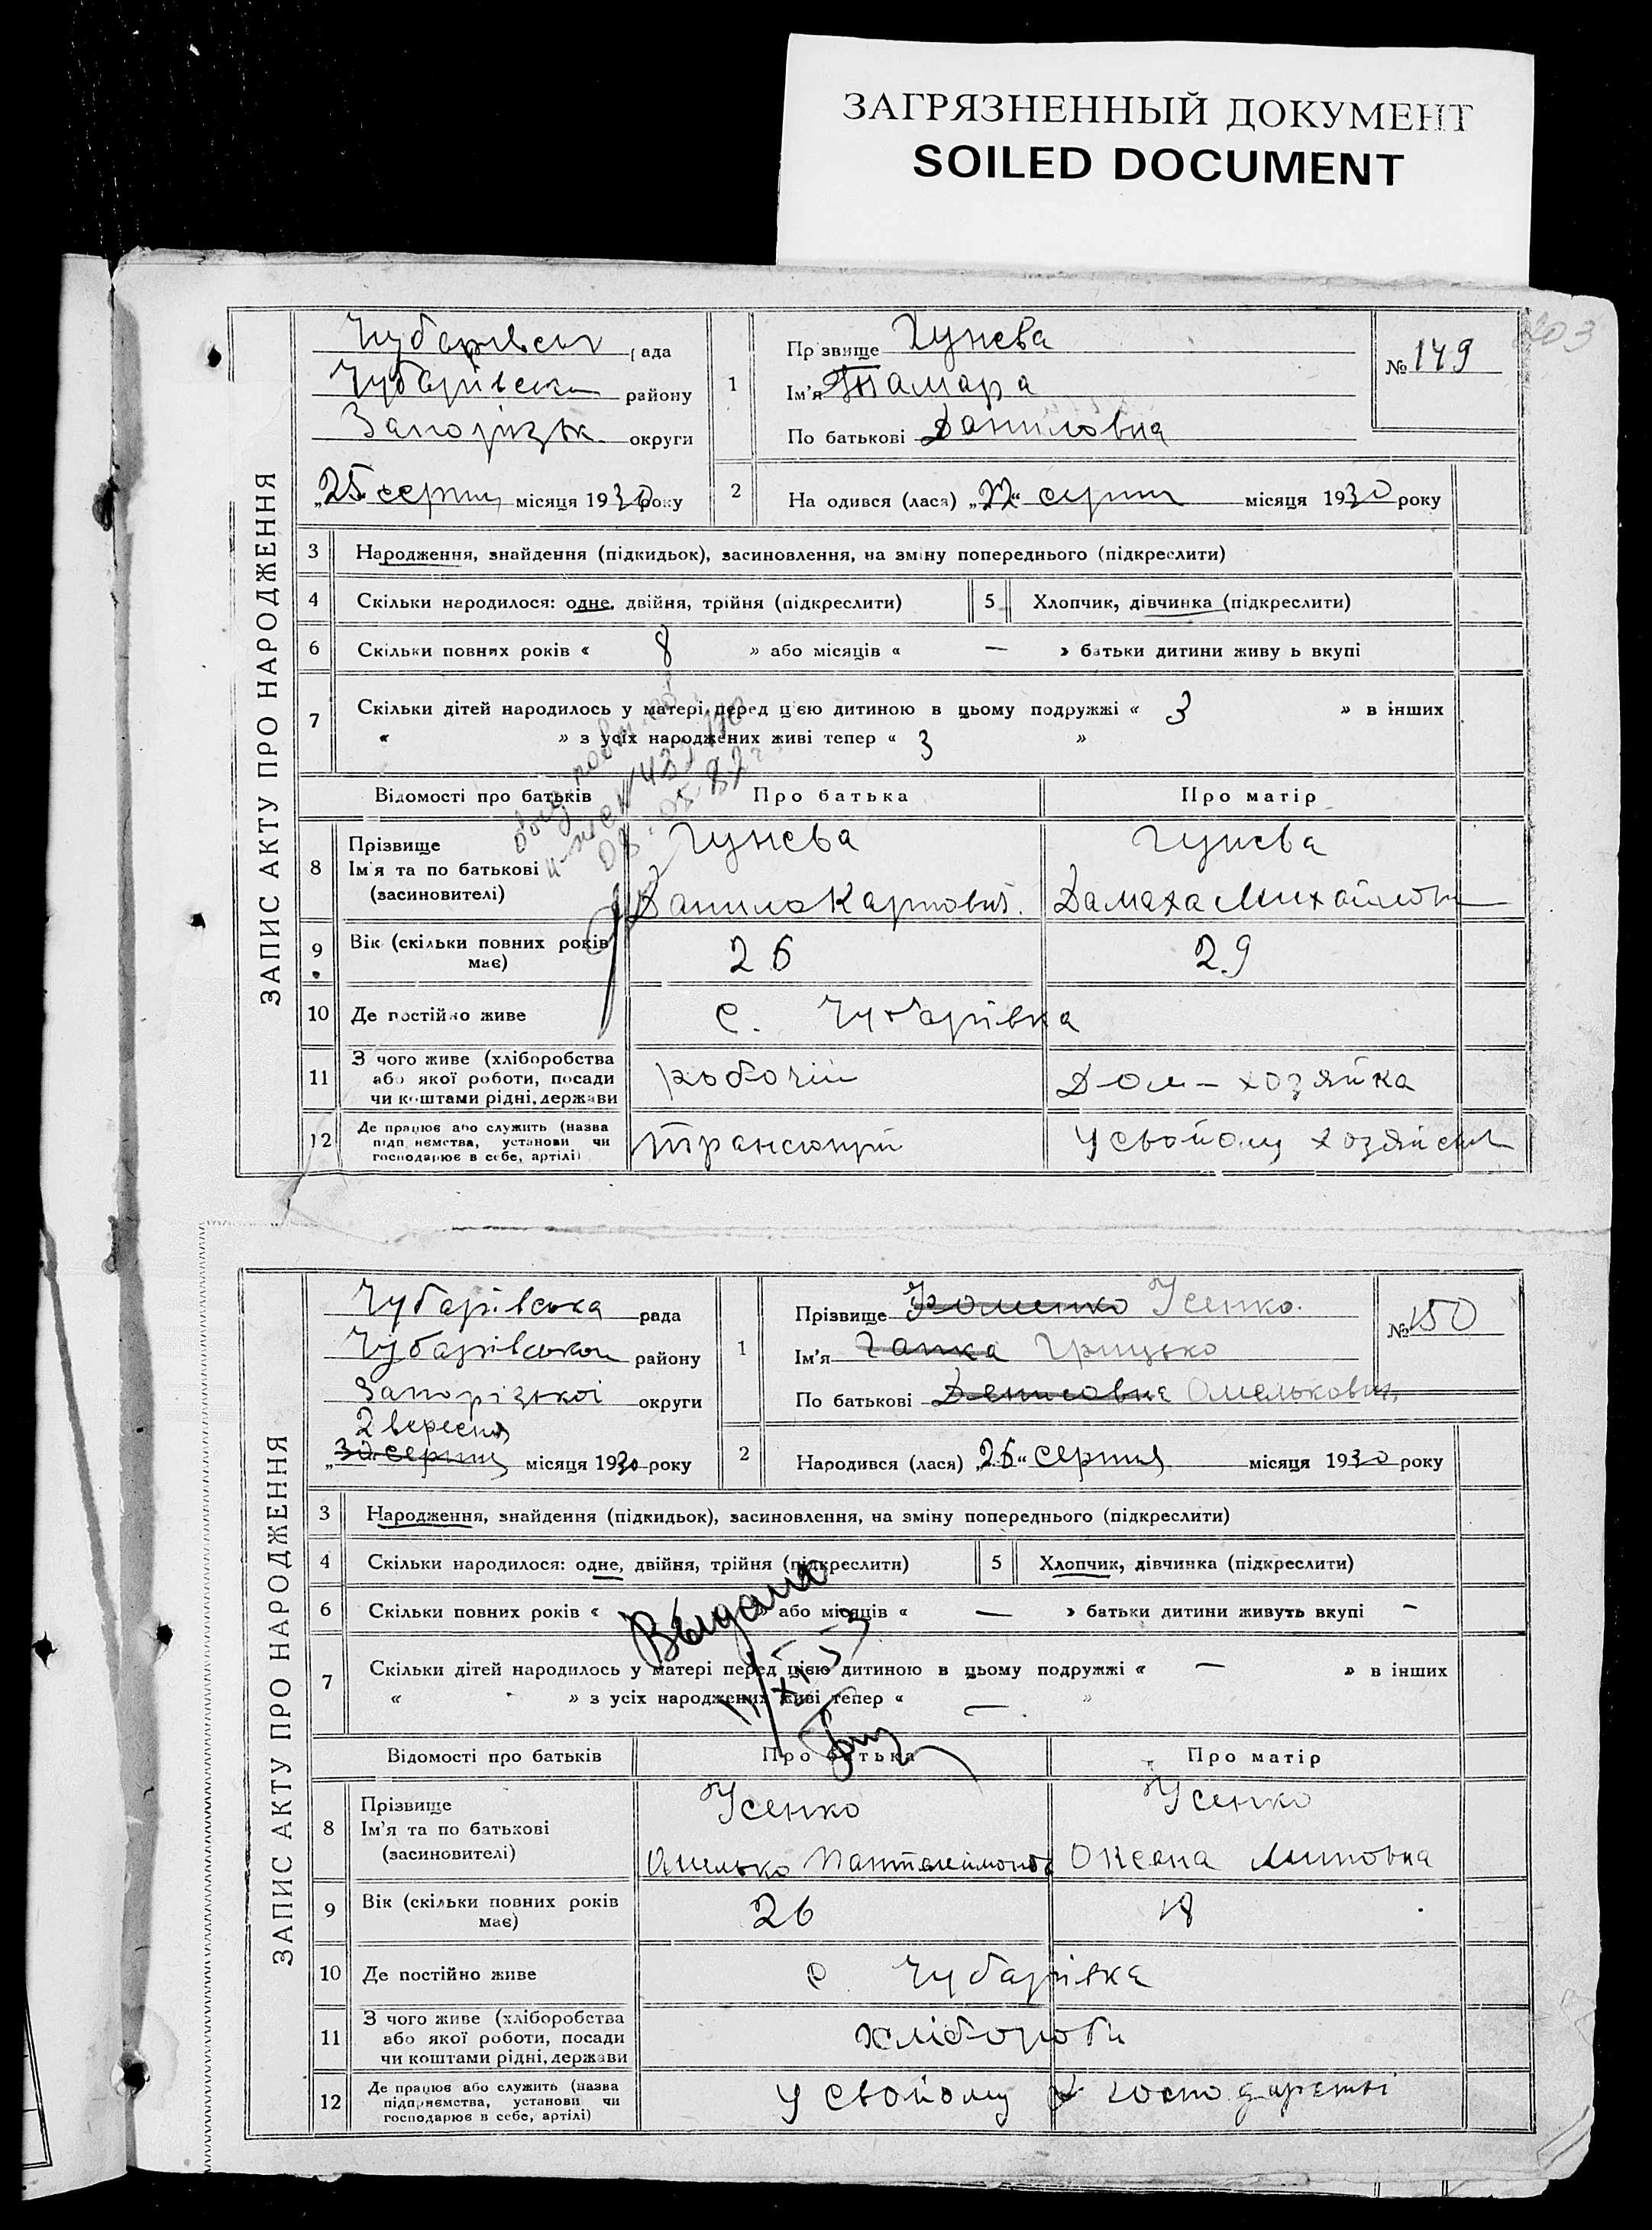 ЗАГРЯЗНЕННЫЙ ДОКУМЕНТ
SOILED DOCUMENT
203
ЗАПИС АКТУ ПРО НАРОДЖЕННЯ
Чубарівськ рада
Чубарівськ району
Запорізьк. округи
„25 серпня місяця 1930 року
1
Прізвище Гунєва
Ім'я Тамара
По батькові Даниловна
№ 149
2
На одився (лася) „22“ серпня місяця 1930 року
3 Народження, знайдення (підкидьок), засиновлення, на зміну попереднього (підкреслити)
4 Скільки народилося: одне, двійня, трійня (підкреслити) 5 Хлопчик, дівчинка (підкреслити)
6 Скільки повних років « 8 » або місяців « — » батьки дитини живу ь вкупі
7 Скільки дітей народилось у матері перед цією дитиною в цьому подружжі « 3 » в інших
« » з усіх народжених живі тепер « 3 »
Відомості про батьків Про батька Про матір
8 Прізвище
Ім'я та по батькові
(засиновителі)
Гунєва
Данило Карпович.
Гунєва
Дамаха Михайловн
9 Вік (скільки повних років має) 26 29
10 Де постійно живе с. Чубарівка
11 З чого живе (хліборобства
або якої роботи, посади
чи коштами рідні, держави
робочій Дом-хозяйка
12 Де працює або служить (назва
підп иємства, установи чи
господарює в себе, артілі)
У свойому хозяйств
ЗАПИС АКТУ ПРО НАРОДЖЕННЯ
Чубарівська рада
Чубарівського району
Запорізької округи
2 вересня
„30 серпня місяця 1930 року
1
Прізвище Хоменко Усенко.
Ім'я Ганка Грицько
По батькові Денисовна Омелькович,
№ 150
2
Народився (лася) „26“ серпня місяця 1930 року
3 Народження, знайдення (підкидьок), засиновлення, на зміну попереднього (підкреслити)
4 Скільки народилося: одне, двійня, трійня (підкреслити) 5 Хлопчик, дівчинка (підкреслити)
6 Скільки повних років « або місяців « — » батьки дитини живуть вкупі —
Выдана
7 Скільки дітей народилось у матері перед цією дитиною в цьому подружжі « — » в інших
« » з усіх народжених живі тепер « — »
Відомості про батьків Про батька Про матір
8 Прізвище
Ім'я та по батькові
(засиновителі)
Усенко
Омелько Пантелеймонов
Усенко
Оксана Липовна
9 Вік (скільки повних років має) 26 18
10 Де постійно живе с. Чубарівка
11 З чого живе (хліборобства
або якої роботи, посади
чи коштами рідні, держави
хліборобы
12 Де працює або служить (назва
підприємства, установи чи
господарює в себе, артілі)
У свойому господарстві